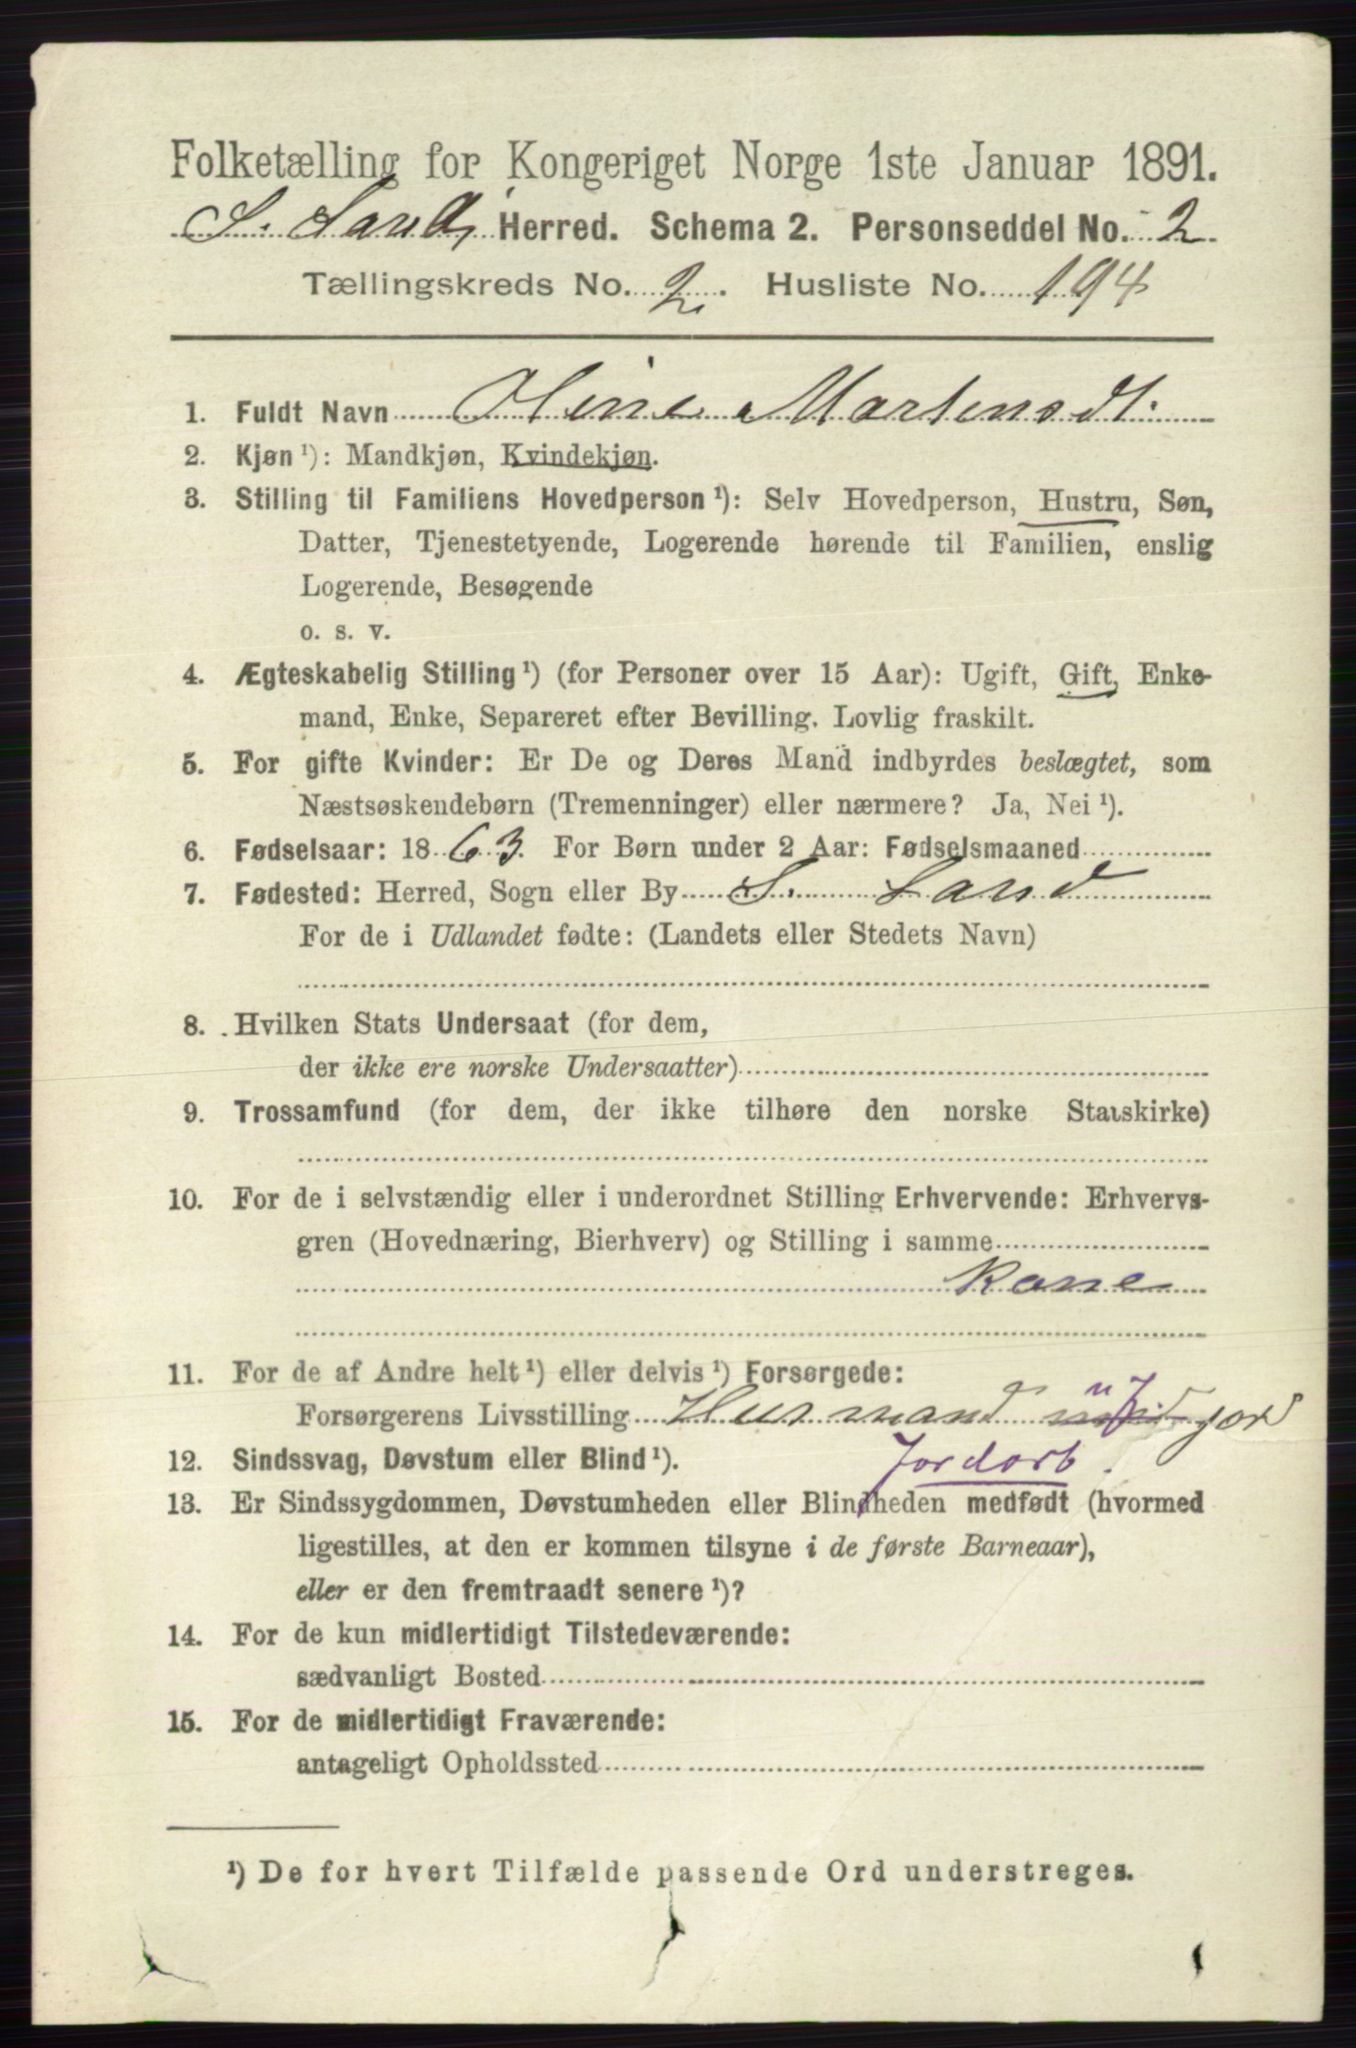 Folketælling for Kongeriget Norge 1ste Januar 1891.
S. Land, Herred. Schema 2. Personseddel No. 2
Tællingskreds No. 2. Husliste No. 194
1. Fuldt Navn Oline Martensdt.
2. Kjøn ¹): Mandkjøn, Kvindekjøn.
3. Stilling til Familiens Hovedperson ¹): Selv Hovedperson, Hustru, Søn,
Datter, Tjenestetyende, Logerende hørende til Familien, enslig
Logerende, Besøgende
o. s. v.
4. Ægteskabelig Stilling ¹) (for Personer over 15 Aar): Ugift, Gift, Enke-
mand, Enke, Separeret efter Bevilling. Lovlig fraskilt.
5. For gifte Kvinder: Er De og Deres Mand indbyrdes beslægtet, som
Næstsøskendebørn (Tremenninger) eller nærmere? Ja, Nei ¹).
6. Fødselsaar: 1863. For Børn under 2 Aar: Fødselsmaaned
7. Fødested: Herred, Sogn eller By S. Land
For de i Udlandet fødte: (Landets eller Stedets Navn)
8. Hvilken Stats Undersaat (for dem,
der ikke ere norske Undersaatter)
9. Trossamfund (for dem, der ikke tilhøre den norske Statskirke)
10. For de i selvstændig eller i underordnet Stilling Erhvervende: Erhvervs-
gren (Hovednæring, Bierhverv) og Stilling i samme
Kone
11. For de af Andre helt ¹) eller delvis ¹) Forsørgede:
Forsørgerens Livsstilling Husmand jord
12. Sindssvag, Døvstum eller Blind ¹). Jordarb.
13. Er Sindssygdommen, Døvstumheden eller Blindheden medfødt (hvormed
ligestilles, at den er kommen tilsyne i de første Barneaar),
eller er den fremtraadt senere ¹)?
14. For de kun midlertidigt Tilstedeværende:
sædvanligt Bosted
15. For de midlertidigt Fraværende:
antageligt Opholdssted
¹) De for hvert Tilfælde passende Ord understreges.